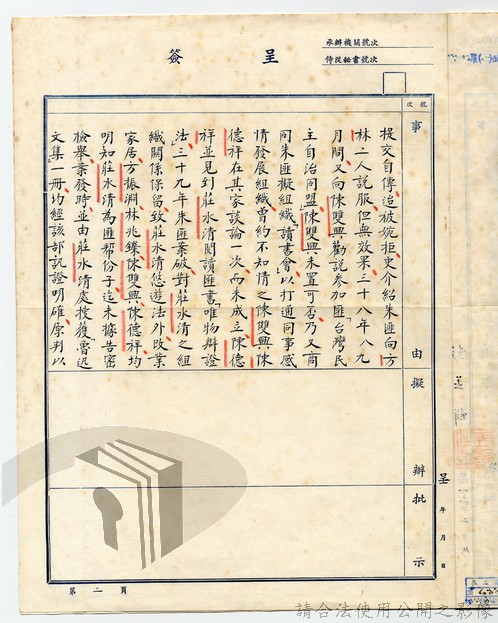 承辦機關號次
侍從祕書號次
呈簽
號次
事由
擬辦
批示
提交自傳迨被婉拒更介紹朱匪向方
林二人說服但無效果三十八年八九
月間又向陳雙興勸說參加匪「台灣民
主自治同盟」陳雙興未置可否乃又商
同朱匪擬組織「讀書會」以打通同事感
情發展組織曾約不知情之陳雙興陳
德祥在其家談論一次而未成立陳德
祥並見到莊水清閱讀匪書「唯物辯證
法」三十九年朱匪案破對莊水清之組
織關係保留致莊水清悠遊法外改業
家居方振淵林兆鏤陳雙興陳德祥均
明知莊水清為匪幫份子迄未據告密
檢舉案發時並由莊水清處搜獲「魯迅
文集一冊均經該部訊證明確原判以
第二頁
呈
年月日
請合法使用公開之影像